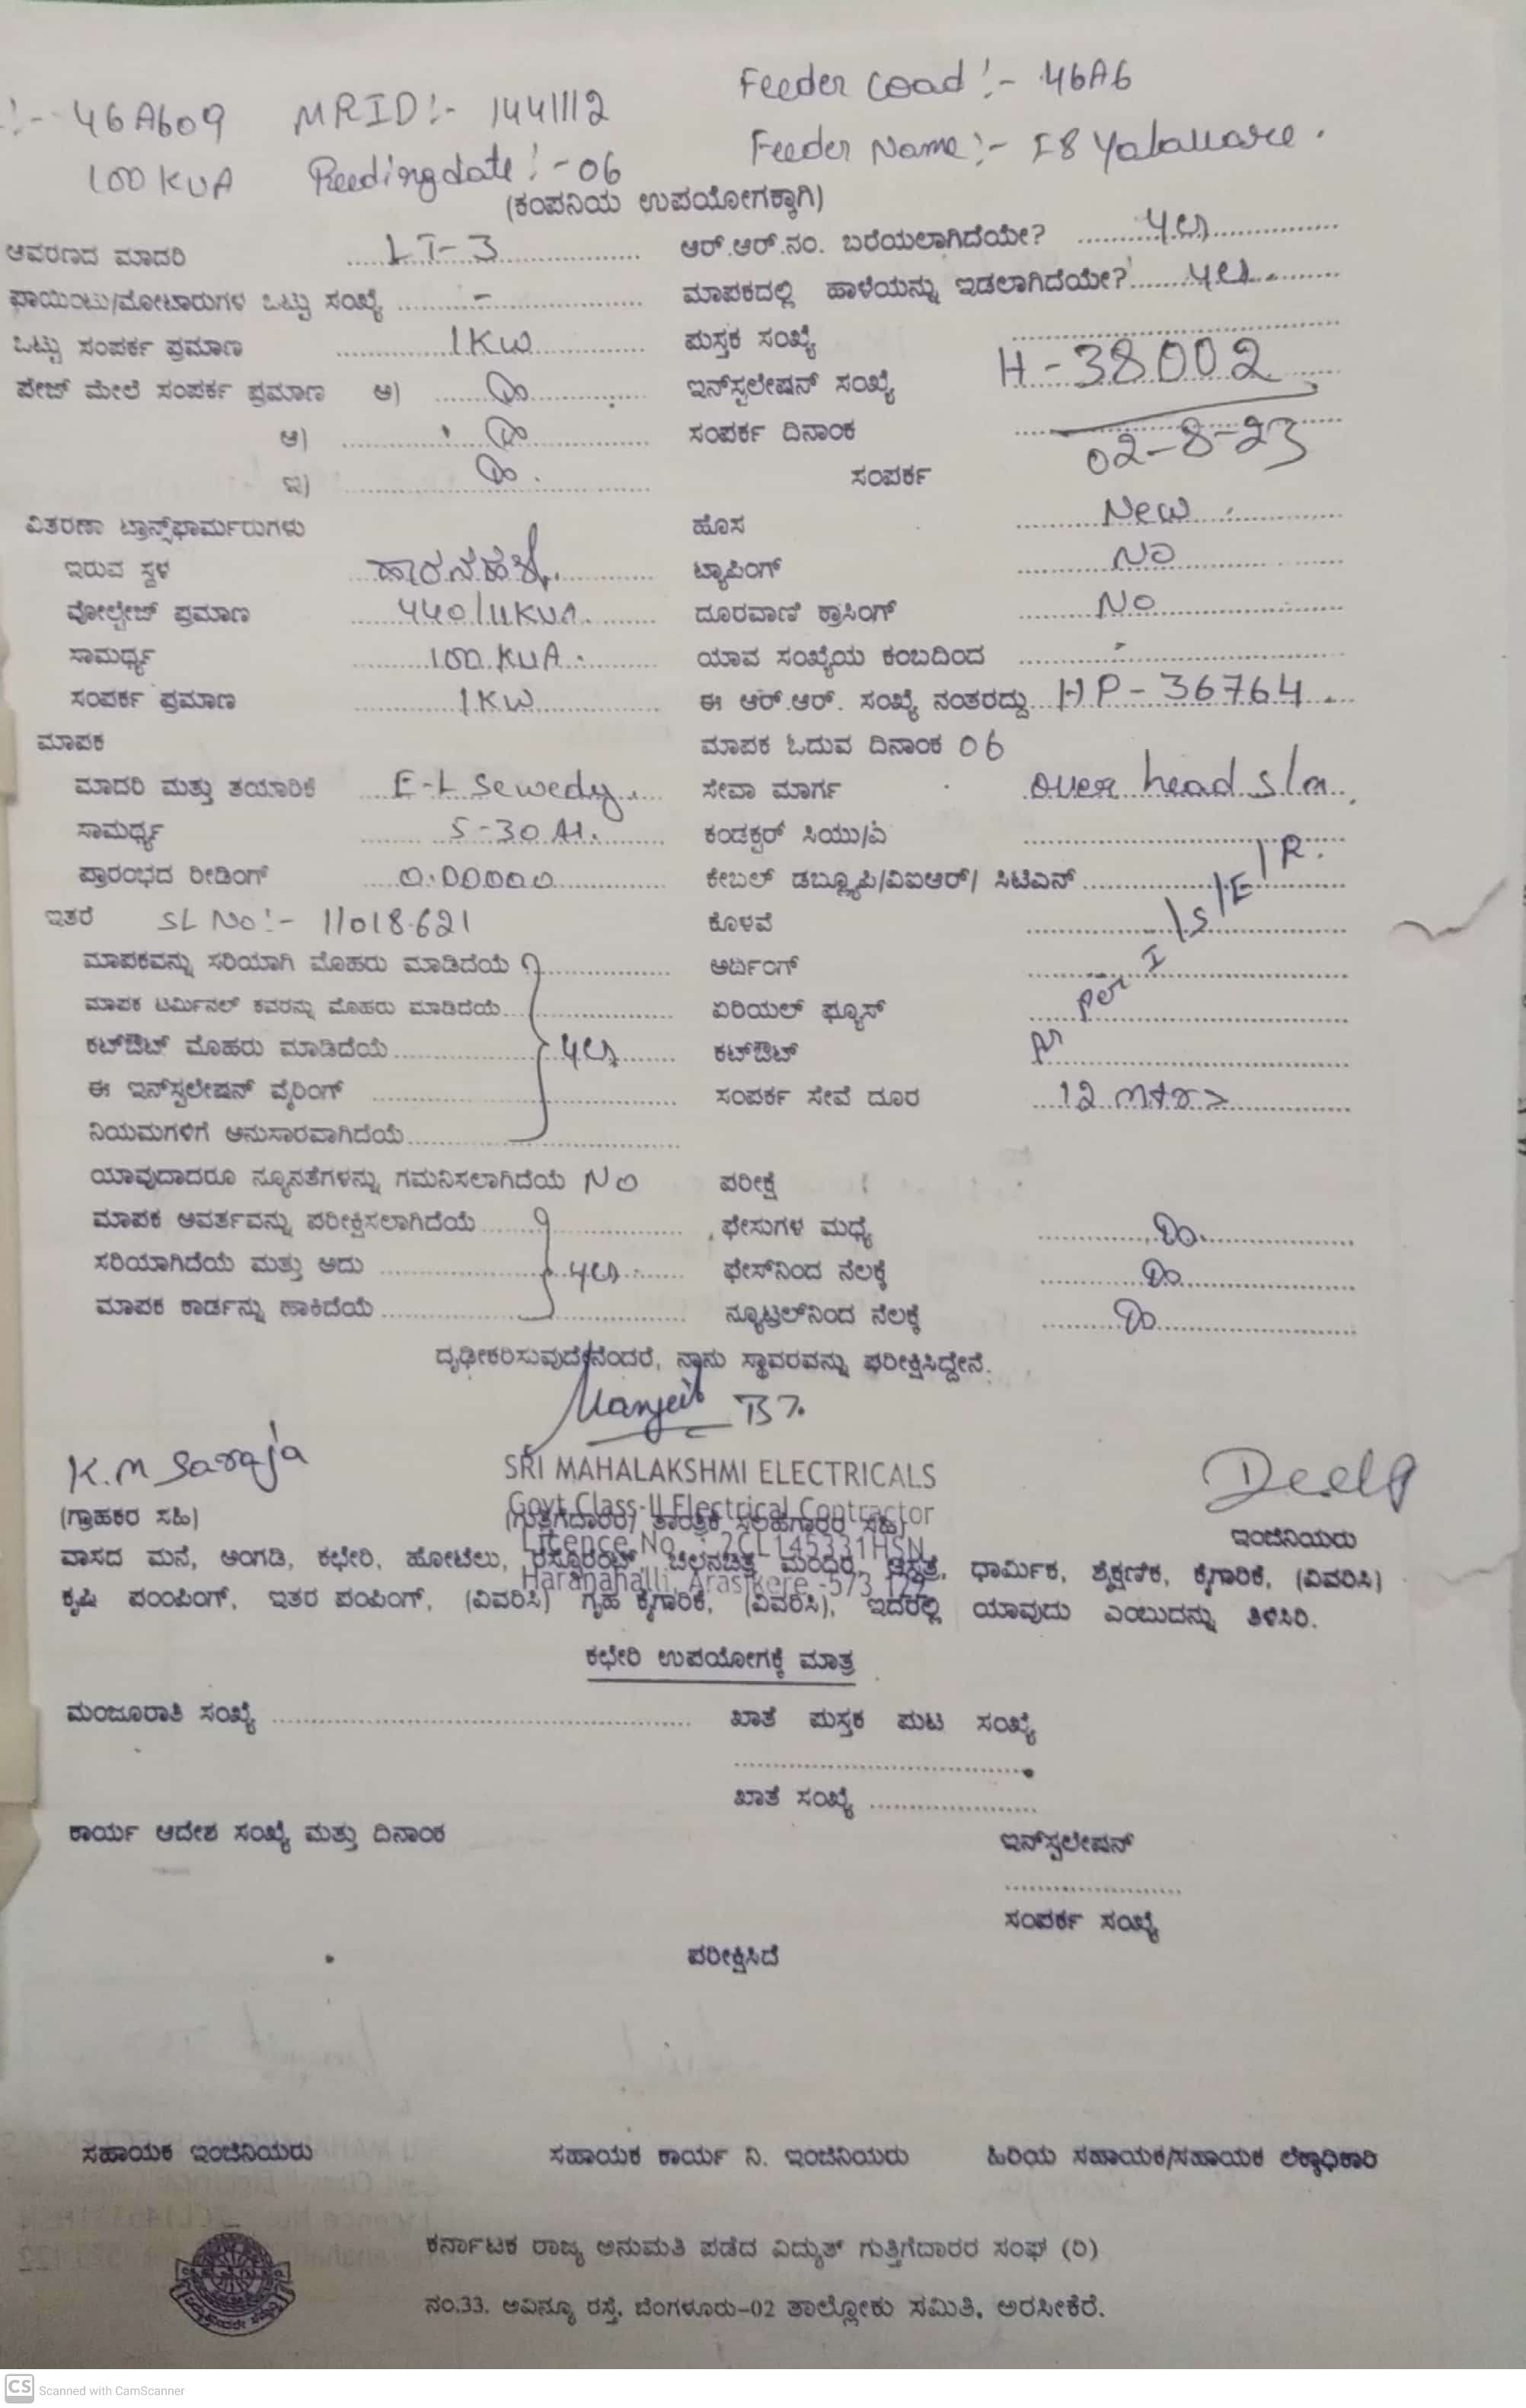 :- 46A609 MRID:- 1441112 Feeder Coad:- 46A6
100 KVA Reedingdate:- 06 Feeder Name:- F8 Yalavare.
(ಕಂಪನಿಯ ಉಪಯೋಗಕ್ಕಾಗಿ)
ಆವರಣದ ಮಾದರಿ LT-3 ಆರ್.ಆರ್.ನಂ. ಬರೆಯಲಾಗಿದೆಯೇ? yes
ಪಾಯಿಂಟು/ಮೋಟಾರುಗಳ ಒಟ್ಟು ಸಂಖ್ಯೆ - ಮಾಪಕದಲ್ಲಿ ಹಾಳೆಯನ್ನು ಇಡಲಾಗಿದೆಯೇ? yes.
ಒಟ್ಟು ಸಂಪರ್ಕ ಪ್ರಮಾಣ 1KW ಪುಸ್ತಕ ಸಂಖ್ಯೆ
ಪೇಜ್ ಮೇಲೆ ಸಂಪರ್ಕ ಪ್ರಮಾಣ ಅ) ಇನ್‌ಸ್ಟಲೇಷನ್ ಸಂಖ್ಯೆ H-38002
ಆ) ಸಂಪರ್ಕ ದಿನಾಂಕ 02-8-23
ಇ) ಸಂಪರ್ಕ
ವಿತರಣಾ ಟ್ರಾನ್ಸ್‌ಫಾರ್ಮರುಗಳು ಹೊಸ New
ಇರುವ ಸ್ಥಳ ಹಾರನಹಳ್ಳಿ. ಟ್ಯಾಪಿಂಗ್ NO
ವೋಲ್ಟೇಜ್ ಪ್ರಮಾಣ 440/11KVA. ದೂರವಾಣಿ ಕ್ರಾಸಿಂಗ್ No
ಸಾಮರ್ಥ್ಯ 100 KVA. ಯಾವ ಸಂಖ್ಯೆಯ ಕಂಬದಿಂದ -
ಸಂಪರ್ಕ ಪ್ರಮಾಣ 1KW ಈ ಆರ್.ಆರ್. ಸಂಖ್ಯೆ ನಂತರದ್ದು HP-36764
ಮಾಪಕ ಮಾಪಕ ಓದುವ ದಿನಾಂಕ 06
ಮಾದರಿ ಮತ್ತು ತಯಾರಿಕೆ E-L Sewedy. ಸೇವಾ ಮಾರ್ಗ over head s/m
ಸಾಮರ್ಥ್ಯ 5-30 A. ಕಂಡಕ್ಟರ್ ಸಿಯು/ಎ
ಪ್ರಾರಂಭದ ರೀಡಿಂಗ್ 0.00000 ಕೇಬಲ್ ಡಬ್ಲ್ಯೂಪಿ/ವಿಐಆರ್/ ಸಿಟಿಎಸ್
ಇತರೆ SL No:- 11018621 ಕೊಳವೆ
ಮಾಪಕವನ್ನು ಸರಿಯಾಗಿ ಮೊಹರು ಮಾಡಿದೆಯೆ ಅರ್ದಿಂಗ್ As per I/S/E/R.
ಮಾಪಕ ಟರ್ಮಿನಲ್ ಕವರನ್ನು ಮೊಹರು ಮಾಡಿದೆಯೆ ಏರಿಯಲ್ ಫ್ಯೂಸ್
ಕಟ್‌ಔಟ್ ಮೊಹರು ಮಾಡಿದೆಯೆ yes ಕಟ್‌ಔಟ್
ಈ ಇನ್‌ಸ್ಟಲೇಷನ್ ವೈರಿಂಗ್ ಸಂಪರ್ಕ ಸೇವೆ ದೂರ 12 mtrs
ನಿಯಮಗಳಿಗೆ ಅನುಸಾರವಾಗಿದೆಯೆ
ಯಾವುದಾದರೂ ನ್ಯೂನತೆಗಳನ್ನು ಗಮನಿಸಲಾಗಿದೆಯೆ No ಪರೀಕ್ಷೆ
ಮಾಪಕ ಆವರ್ತವನ್ನು ಪರೀಕ್ಷಿಸಲಾಗಿದೆಯೆ ಫೇಸುಗಳ ಮಧ್ಯೆ
ಸರಿಯಾಗಿದೆಯೆ ಮತ್ತು ಅದು yes ಫೇಸ್‌ನಿಂದ ನೆಲಕ್ಕೆ
ಮಾಪಕ ಕಾರ್ಡನ್ನು ಹಾಕಿದೆಯೆ ನ್ಯೂಟ್ರಲ್‌ನಿಂದ ನೆಲಕ್ಕೆ
ದೃಢೀಕರಿಸುವುದೇನೆಂದರೆ, ನಾನು ಸ್ಥಾವರವನ್ನು ಪರೀಕ್ಷಿಸಿದ್ದೇನೆ.
K.M Saroja
SRI MAHALAKSHMI ELECTRICALS
Govt Class-II Electrical Contractor
(ಗ್ರಾಹಕರ ಸಹಿ) (ಗುತ್ತಿಗೆದಾರರ/ ತಾಂತ್ರಿಕ ಸಲಹೆಗಾರರ ಸಹಿ) ಇಂಜಿನಿಯರು
Licence No. : 2CL145331HSN
ವಾಸದ ಮನೆ, ಅಂಗಡಿ, ಕಛೇರಿ, ಹೋಟೆಲು, ರೆಸ್ಟೋರೆಂಟ್ ಚಲನಚಿತ್ರ ಮಂದಿರ, ಆಸ್ಪತ್ರೆ, ಧಾರ್ಮಿಕ, ಶೈಕ್ಷಣಿಕ, ಕೈಗಾರಿಕೆ, (ವಿವರಿಸಿ)
Haranahalli, Arasikere -573 122
ಕೃಷಿ ಪಂಂಪಿಂಗ್, ಇತರ ಪಂಪಿಂಗ್, (ವಿವರಿಸಿ) ಗೃಹ ಕೈಗಾರಿಕೆ, (ವಿವರಿಸಿ), ಇದರಲ್ಲಿ ಯಾವುದು ಎಂಬುದನ್ನು ತಿಳಿಸಿರಿ.
ಕಛೇರಿ ಉಪಯೋಗಕ್ಕೆ ಮಾತ್ರ
ಮಂಜೂರಾತಿ ಸಂಖ್ಯೆ ಖಾತೆ ಪುಸ್ತಕ ಪುಟ ಸಂಖ್ಯೆ
ಖಾತೆ ಸಂಖ್ಯೆ
ಕಾರ್ಯ ಆದೇಶ ಸಂಖ್ಯೆ ಮತ್ತು ದಿನಾಂಕ ಇನ್‌ಸ್ಟಲೇಷನ್
ಸಂಪರ್ಕ ಸಂಖ್ಯೆ
ಪರೀಕ್ಷಿಸಿದೆ
ಸಹಾಯಕ ಇಂಜಿನಿಯರು ಸಹಾಯಕ ಕಾರ್ಯ ನಿ. ಇಂಜಿನಿಯರು ಹಿರಿಯ ಸಹಾಯಕ/ಸಹಾಯಕ ಲೆಕ್ಕಾಧಿಕಾರಿ
ಕರ್ನಾಟಕ ರಾಜ್ಯ ಅನುಮತಿ ಪಡೆದ ವಿದ್ಯುತ್ ಗುತ್ತಿಗೆದಾರರ ಸಂಘ (ರಿ)
ನಂ.33. ಅವಿನ್ಯೂ ರಸ್ತೆ, ಬೆಂಗಳೂರು-02 ತಾಲ್ಲೋಕು ಸಮಿತಿ, ಅರಸೀಕೆರೆ.
CS Scanned with CamScanner